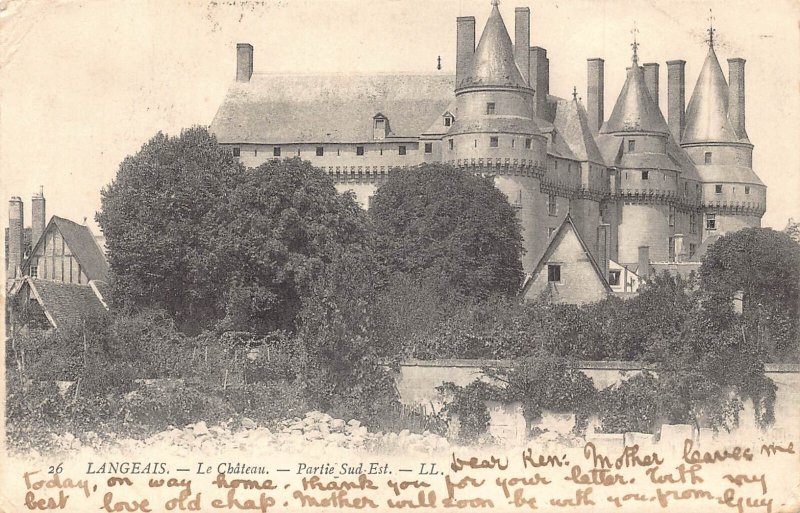 26 LANGEAIS. — Le Château. — Partie Sud-Est. — LL.
Dear Ken:. Mother leaves me
today, on way home. thank you for your letter. With my
best love old chap. Mother will soon be with you. from Guy.